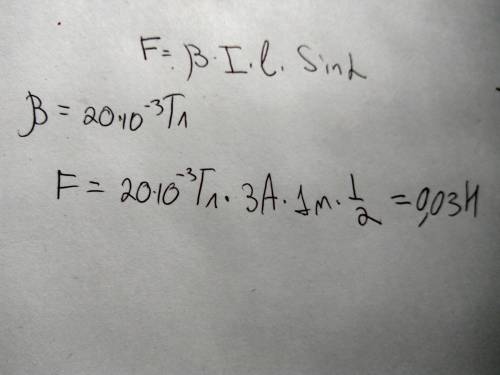 F = B · I · l · Sinα
B = 20·10⁻³ Тл
F = 20·10⁻³ Тл · 3А · 1м · 1/2 = 0,03Н